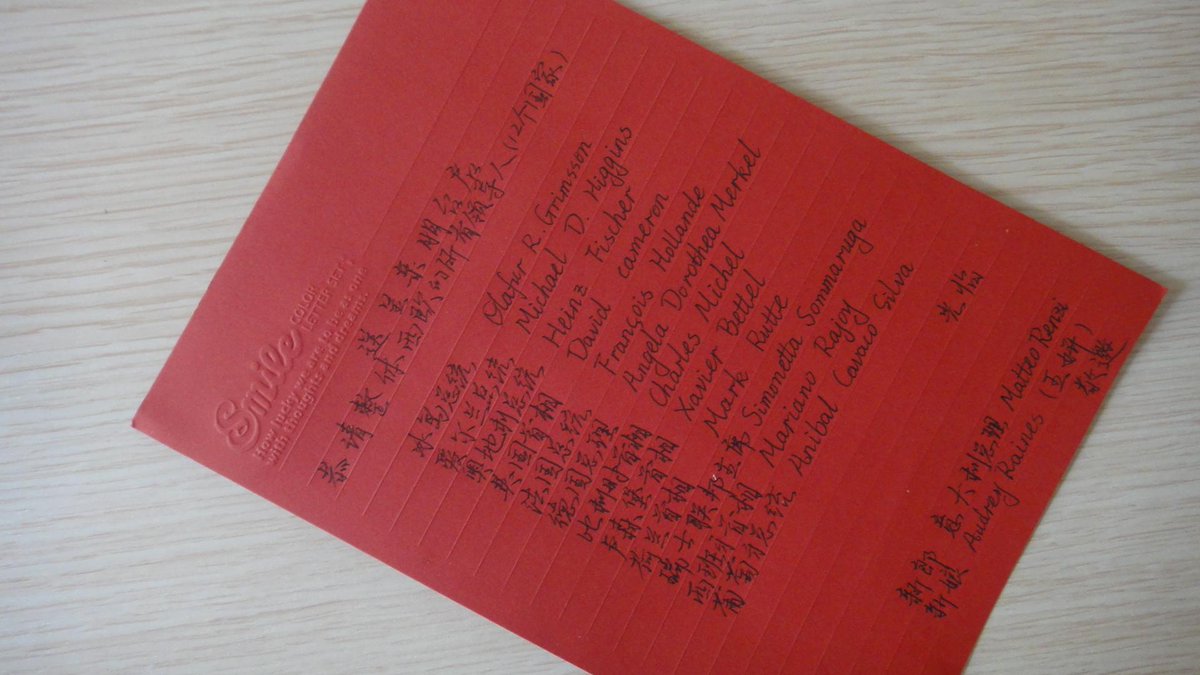 Smile COLOR LETTER SET!
How lucky we are to be as one
with thoughts and dream.
恭请 整体 送呈 亲朋 台启
西欧的所有领导人(12个国家)
冰岛总统 Olafur R. Grimsson
爱尔兰总统 Michael D. Higgins
奥地利总统 Heinz Fischer
英国首相 David cameron
法国总统 François Hollande
德国总理 Angela Dorothea Merkel
比利时首相 Charles Michel
卢森堡首相 Xavier Bettel
荷兰首相 Mark Rutte
瑞士联邦主席 Simonetta Sommaruga
西班牙首相 Mariano Rajoy
葡萄牙总统 Anibal Cavaco Silva
光临
新郎 意大利总理 Matteo Renzi
新娘 Audrey Raines (王妍)
敬邀